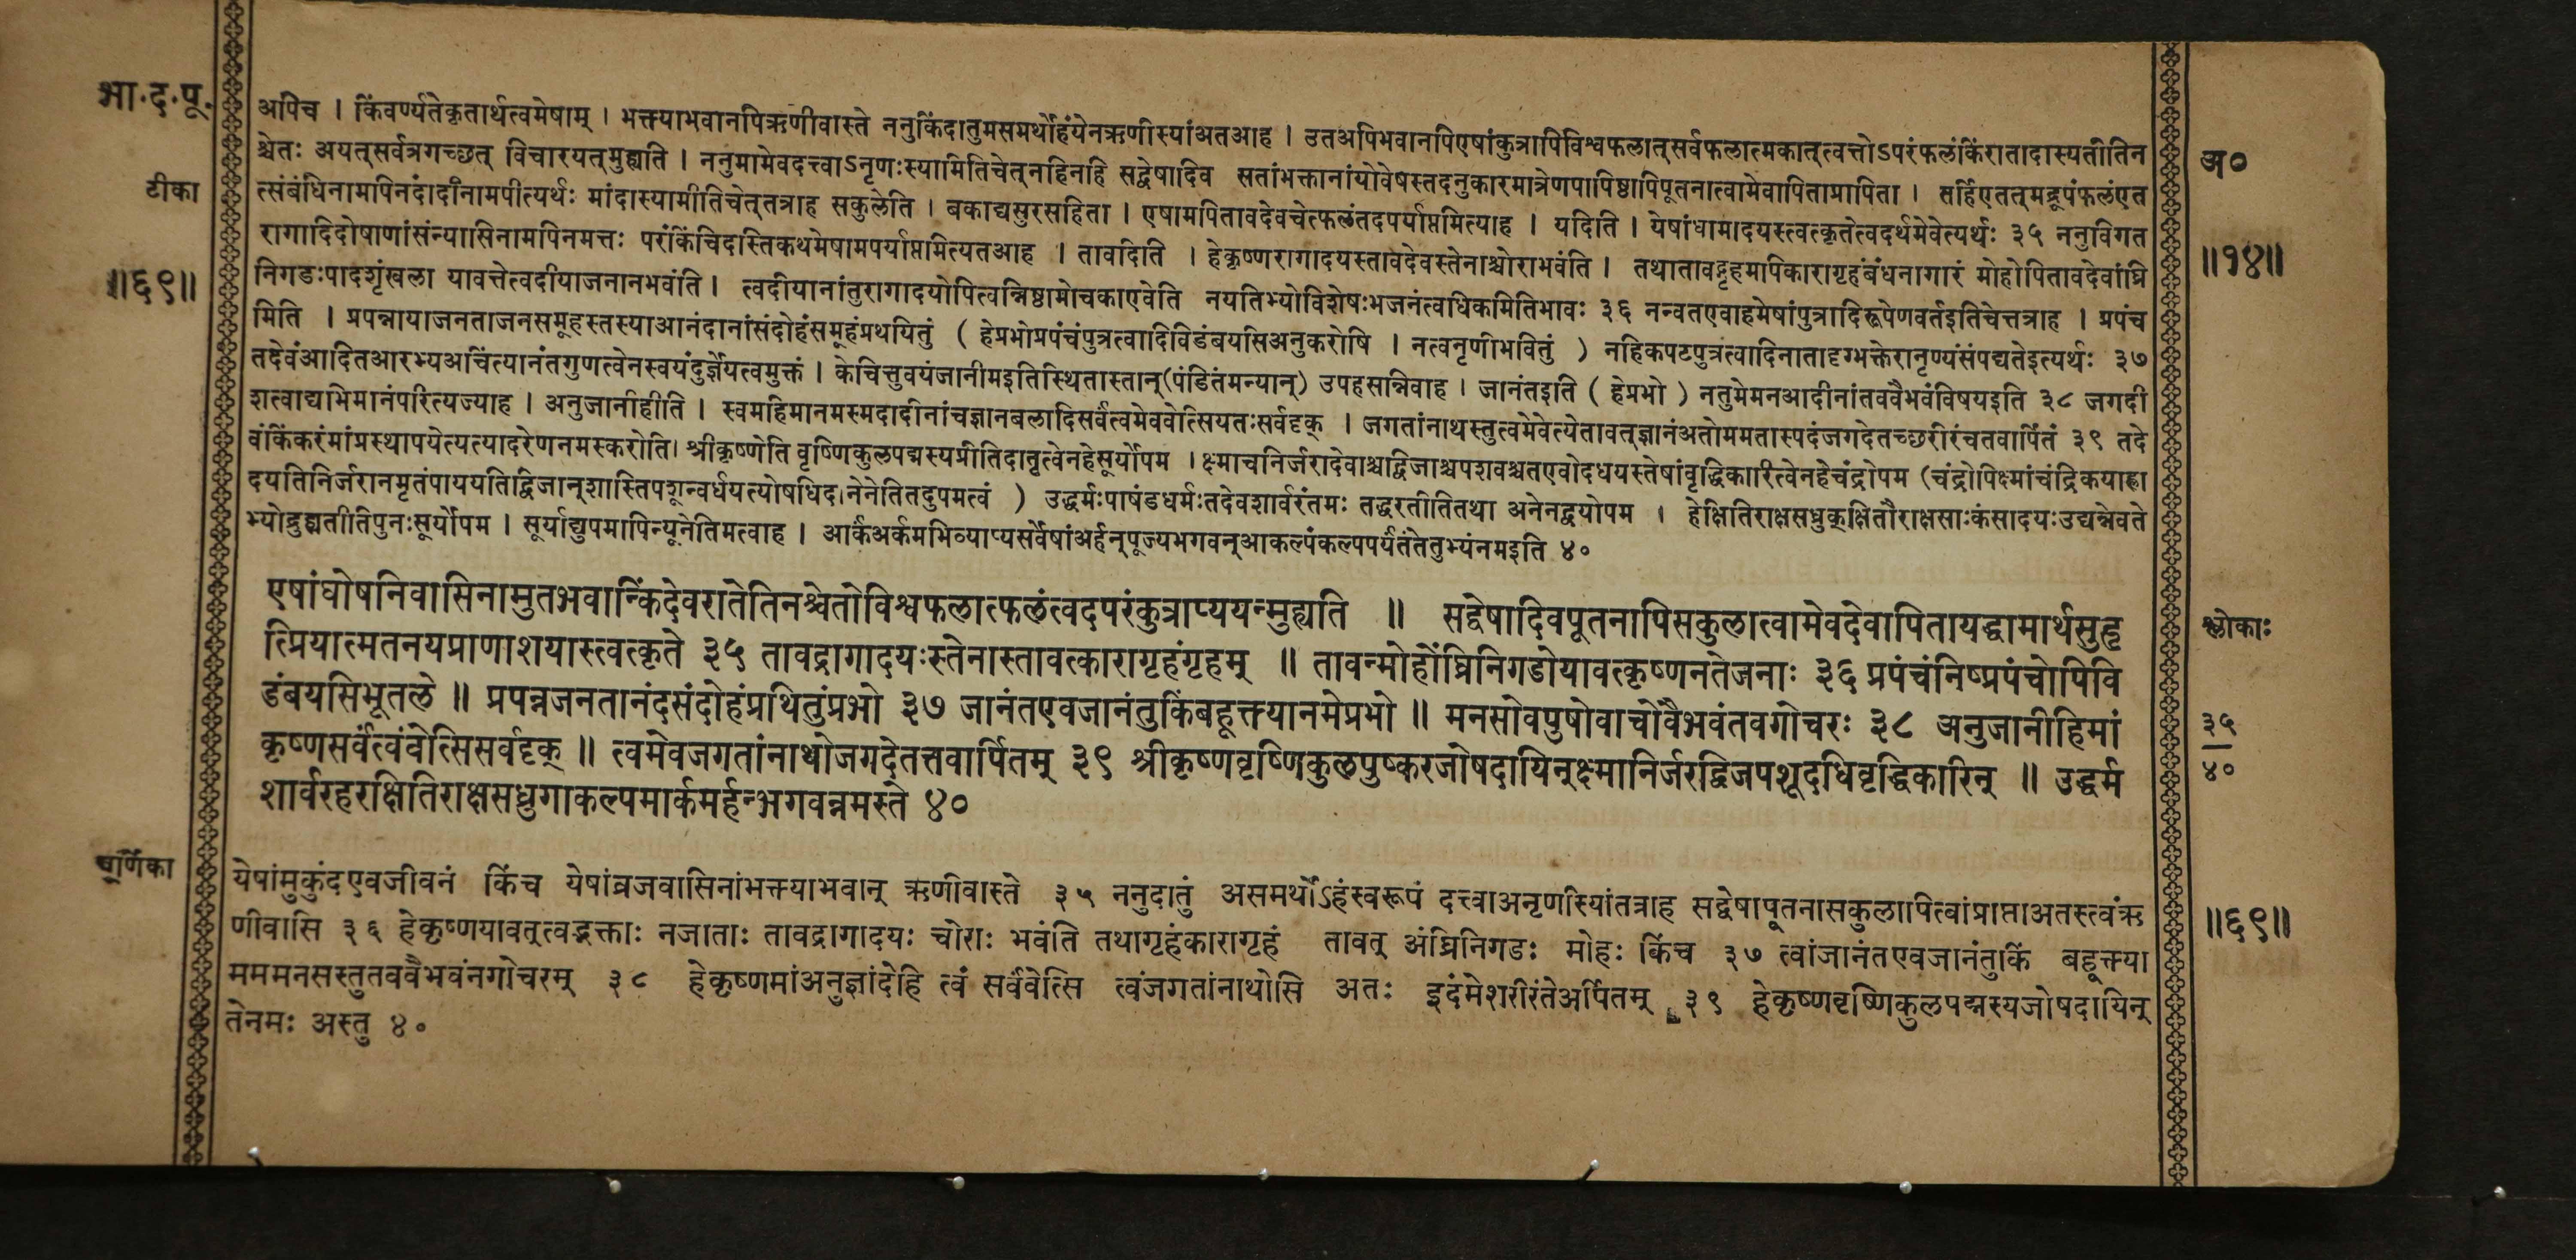 भा.द.पू.
टीका
॥६९॥
अपिच । किंवर्ण्यतेकृतार्थत्वमेषाम् । भक्त्याभवानपिऋणीवास्ते ननुकिंदातुमसमर्थोहंयेनऋणीस्यांअतआह । उतअपिभवानपिएषांकुत्रापिविश्वफलात्सर्वफलात्मकात्त्वत्तोऽपरंफलंकिंरातादास्यतीतिन
श्चेतः अयत्सर्वत्रगच्छत् विचारयत्मुह्यति । ननुमामेवदत्त्वाऽनृणःस्यामितिचेत्नहिनहि सद्वेषादिव सतांभक्तानांयोवेषस्तदनुकारमात्रेणपापिष्ठापिपूतनात्वामेवापिताप्रापिता । तर्हिएतत्मद्रूपंफलंएत
त्संबंधिनामपिनंदादीनामपीत्यर्थः मांदास्यामीतिचेत्तत्राह सकुलेति । बकाद्यसुरसहिता । एषामपितावदेवचेत्फलंतदपर्याप्तमित्याह । यदिति । येषांधामादयस्त्वत्कृतेत्वदर्थमेवेत्यर्थः ३५ ननुविगत
रागादिदोषाणांसंन्यासिनामपिनमत्तः परंकिंचिदस्तिकथमेषामपर्याप्तमित्यतआह । तावदिति । हेकृष्णरागादयस्तावदेवस्तेनाश्चोराभवंति । तथातावद्गृहमपिकारागृहंबंधनागारं मोहोपितावदेवांघ्रि
निगडःपादशृंखला यावत्तेत्वदीयाजनानभवंति । त्वदीयानांतुरागादयोपित्वन्निष्ठामोचकाएवेति नयतिभ्योविशेषःभजनंत्वधिकमितिभावः ३६ नन्वतएवाहमेषांपुत्रादिरूपेणवर्तइतिचेत्तत्राह । प्रपंच
मिति । प्रपन्नायाजनताजनसमूहस्तस्याआनंदानांसंदोहंसमूहंप्रथयितुं ( हेप्रभोप्रपंचंपुत्रत्वादिविडंबयसिअनुकरोषि । नत्वनृणीभवितुं ) नहिकपटपुत्रत्वादिनातादृग्भक्तेरानृण्यंसंपद्यतेइत्यर्थः ३७
तदेवंआदितआरभ्यअचिंत्यानंतगुणत्वेनस्वयंदुर्ज्ञेयत्वमुक्तं । केचित्तुवयंजानीमइतिस्थितास्तान्(पंडितंमन्यान्) उपहसन्निवाह । जानंतइति ( हेप्रभो ) नतुमेमनआदीनांतववैभवंविषयइति ३८ जगदी
शत्वाद्यभिमानंपरित्यज्याह । अनुजानीहीति । स्वमहिमानमस्मदादीनांचज्ञानबलादिसर्वंत्वमेववेत्सियतःसर्वदृक् । जगतांनाथस्तुत्वमेवेत्येतावत्ज्ञानंअतोममतास्पदंजगदेतच्छरीरंचतवार्पितं ३९ तदे
वंकिंकरंमांप्रस्थापयेत्यत्यादरेणनमस्करोति। श्रीकृष्णेति वृष्णिकुलपद्मस्यप्रीतिदातृत्वेनहेसूर्योपम । क्ष्माचनिर्जरादेवाश्चद्विजाश्चपशवश्चतएवोदधयस्तेषांवृद्धिकारित्वेनहेचंद्रोपम (चंद्रोपिक्ष्मांचंद्रिकयाह्ला
दयतिनिर्जरानमृतंपाययतिद्विजान्शास्तिपशून्वर्धयत्योषधिदानेनेतितदुपमत्वं ) उद्धर्मःपाषंडधर्मःतदेवशार्वरंतमः तद्धरतीतितथा अनेनद्वयोपम । हेक्षितिराक्षसध्रुक्क्षितौराक्षसाःकंसादयःउद्यन्नेवते
भ्योद्रुह्यतीतिपुनःसूर्योपम । सूर्याद्युपमापिन्यूनेतिमत्वाह । आर्कंअर्कमभिव्याप्यसर्वेषांअर्हन्पूज्यभगवन्आकल्पंकल्पपर्यंतंतेतुभ्यंनमइति ४०
अ०
॥१४॥
एषांघोषनिवासिनामुतभवान्किंदेवरातेतिनश्चेतोविश्वफलात्फलंत्वदपरंकुत्राप्ययन्मुह्यति ॥ सद्वेषादिवपूतनापिसकुलात्वामेवदेवापितायद्धामार्थसुहृ
त्प्रियात्मतनयप्राणाशयास्त्वत्कृते ३५ तावद्रागादयःस्तेनास्तावत्कारागृहंगृहम् ॥ तावन्मोहोंघ्रिनिगडोयावत्कृष्णनतेजनाः ३६ प्रपंचंनिष्प्रपंचोपिवि
डंबयसिभूतले ॥ प्रपन्नजनतानंदसंदोहंप्रथितुंप्रभो ३७ जानंतएवजानंतुकिंबहूक्त्यानमेप्रभो ॥ मनसोवपुषोवाचोवैभवंतवगोचरः ३८ अनुजानीहिमां
कृष्णसर्वंत्वंवेत्सिसर्वदृक् ॥ त्वमेवजगतांनाथोजगदेतत्तवार्पितम् ३९ श्रीकृष्णवृष्णिकुलपुष्करजोषदायिन्क्ष्मानिर्जरद्विजपशूदधिवृद्धिकारिन् ॥ उद्धर्म
शार्वरहरक्षितिराक्षसध्रुगाकल्पमार्कमर्हन्भगवन्नमस्ते ४०
श्लोकाः
३५
४०
चूर्णिका
येषांमुकुंदएवजीवनं किंच येषांव्रजवासिनांभक्त्याभवान् ऋणीवास्ते ३५ ननुदातुं असमर्थोऽहंस्वरूपं दत्त्वाअनृणीस्यांतत्राह सद्वेषापूतनासकुलापित्वांप्राप्ताअतस्त्वंऋ
णीवासि ३६ हेकृष्णयावत्त्वद्भक्ताः नजाताः तावद्रागादयः चोराः भवंति तथागृहंकारागृहं तावत् अंघ्रिनिगडः मोहः किंच ३७ त्वांजानंतएवजानंतुकिं बहूक्त्या
मममनसस्तुतववैभवंनगोचरम् ३८ हेकृष्णमांअनुज्ञांदेहि त्वं सर्वंवेत्सि त्वंजगतांनाथोसि अतः इदंमेशरीरंतेअर्पितम् ३९ हेकृष्णवृष्णिकुलपद्मस्यजोषदायिन्
तेनमः अस्तु ४०
॥६९॥